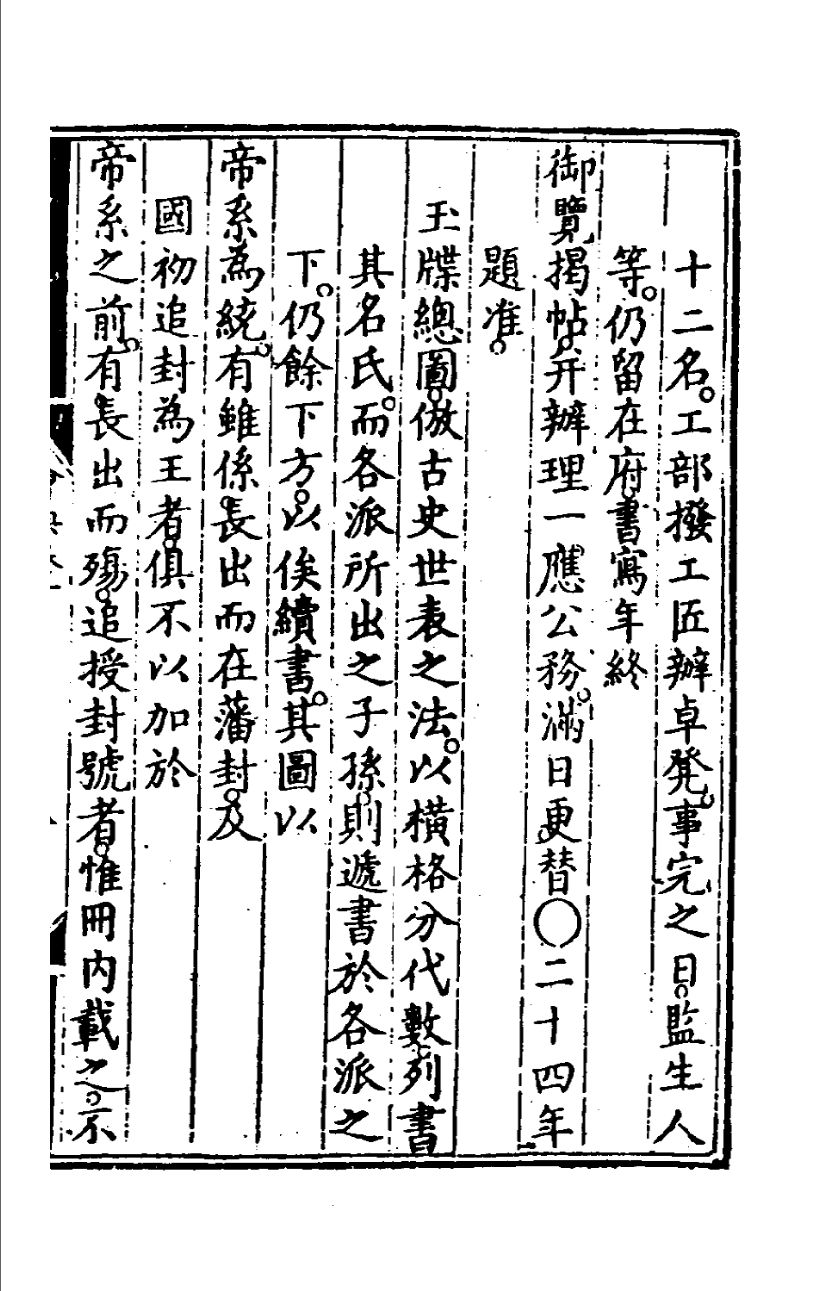 十二名。工部撥工匠辦卓凳。事完之日。監生人
等。仍留在府。書寫年終
御覽揭帖。并辦理一應公務。滿日更替〇二十四年
題准。
玉牒總圖。倣古史世表之法。以橫格分代數。列書
其名氏。而各派所出之子孫。則遞書於各派之
下。仍餘下方。以俟續書。其圖以
帝系為統。有雖係長出而在藩封。及
國初追封為王者。俱不以加於
帝系之前。有長出而殤。追授封號者。惟冊內載之。示